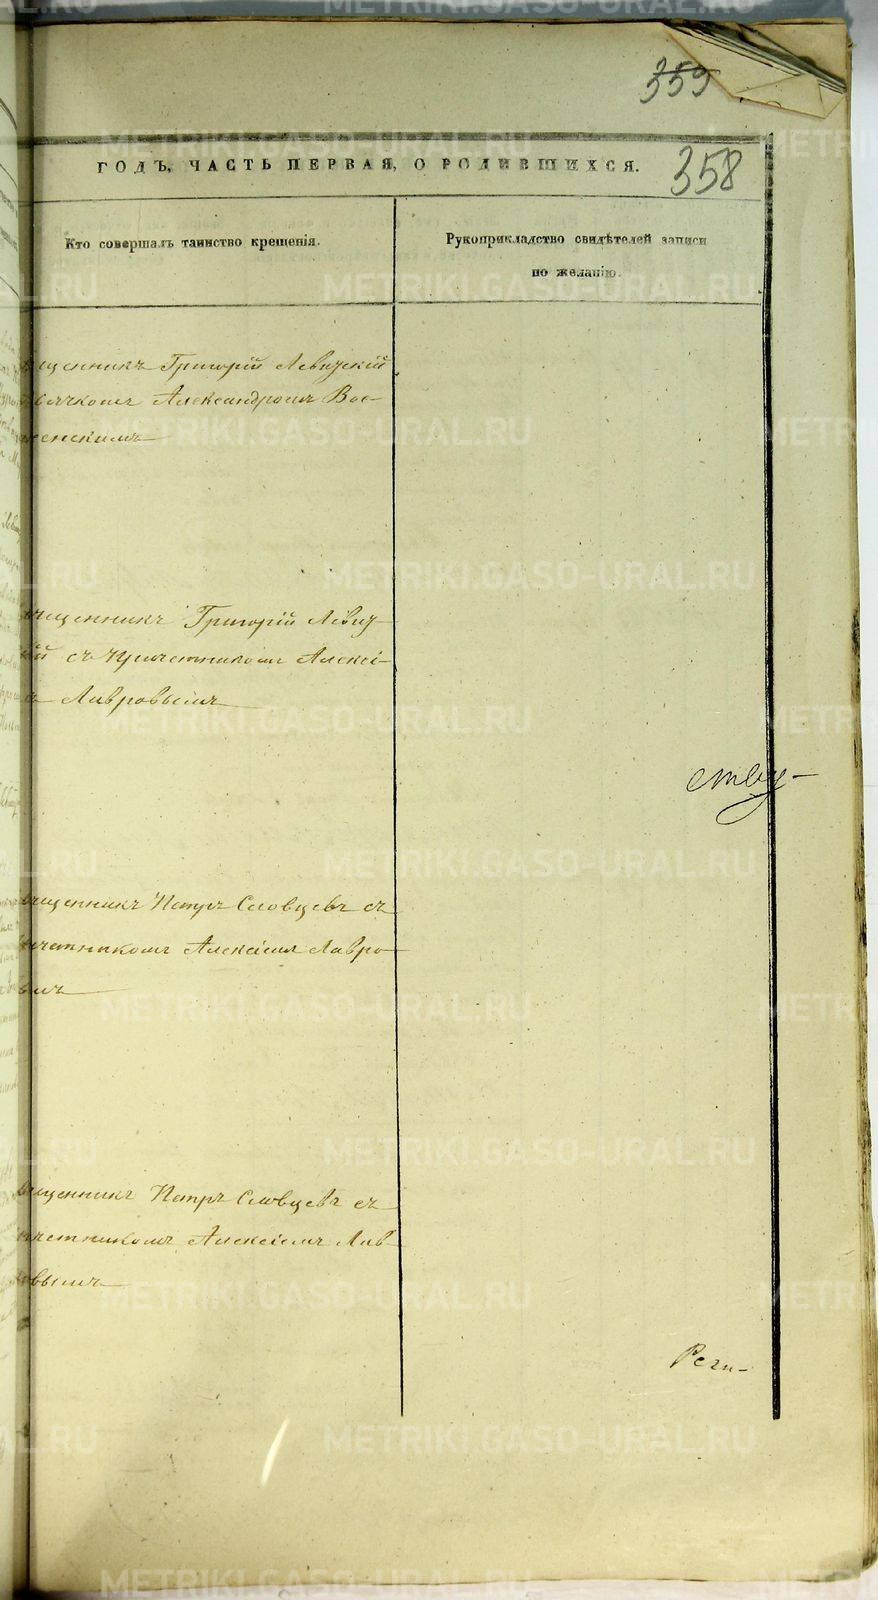 359
358
ГОДЪ, ЧАСТЬ ПЕРВАЯ, О РОДИВШИХСЯ.
Кто совершалъ таинство крещенія.
Рукоприкладство свидѣтелей записи
по желанію.
щенникъ Григорій Левицкій
Александромъ Вос-
сенскимъ
щенникъ Григорій Левиц-
кій съ Причетникомъ Алексі-
Лавровымъ
ству-
щенникъ Петръ Словцевъ съ
четникомъ Алексіемъ Лавро-
вымъ
щенникъ Петръ Словцевъ съ
четникомъ Алексіемъ Лав-
овымъ
Реги-
METRIKI.GASO-URAL.RU